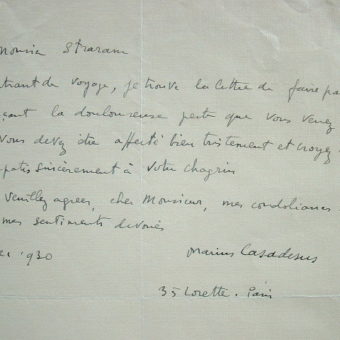 Monsieur Straram
trant de voyage, je trouve la lettre de faire pa
çant la douloureuse perte que vous venez
Vous devez être affecté bien tristement et croyez
patis sincèrement à votre chagrin
Veuillez agréer, cher Monsieur, mes condoléances
mes sentiments dévoués
1930
Marius Casadesus
35 Lorette. Paris